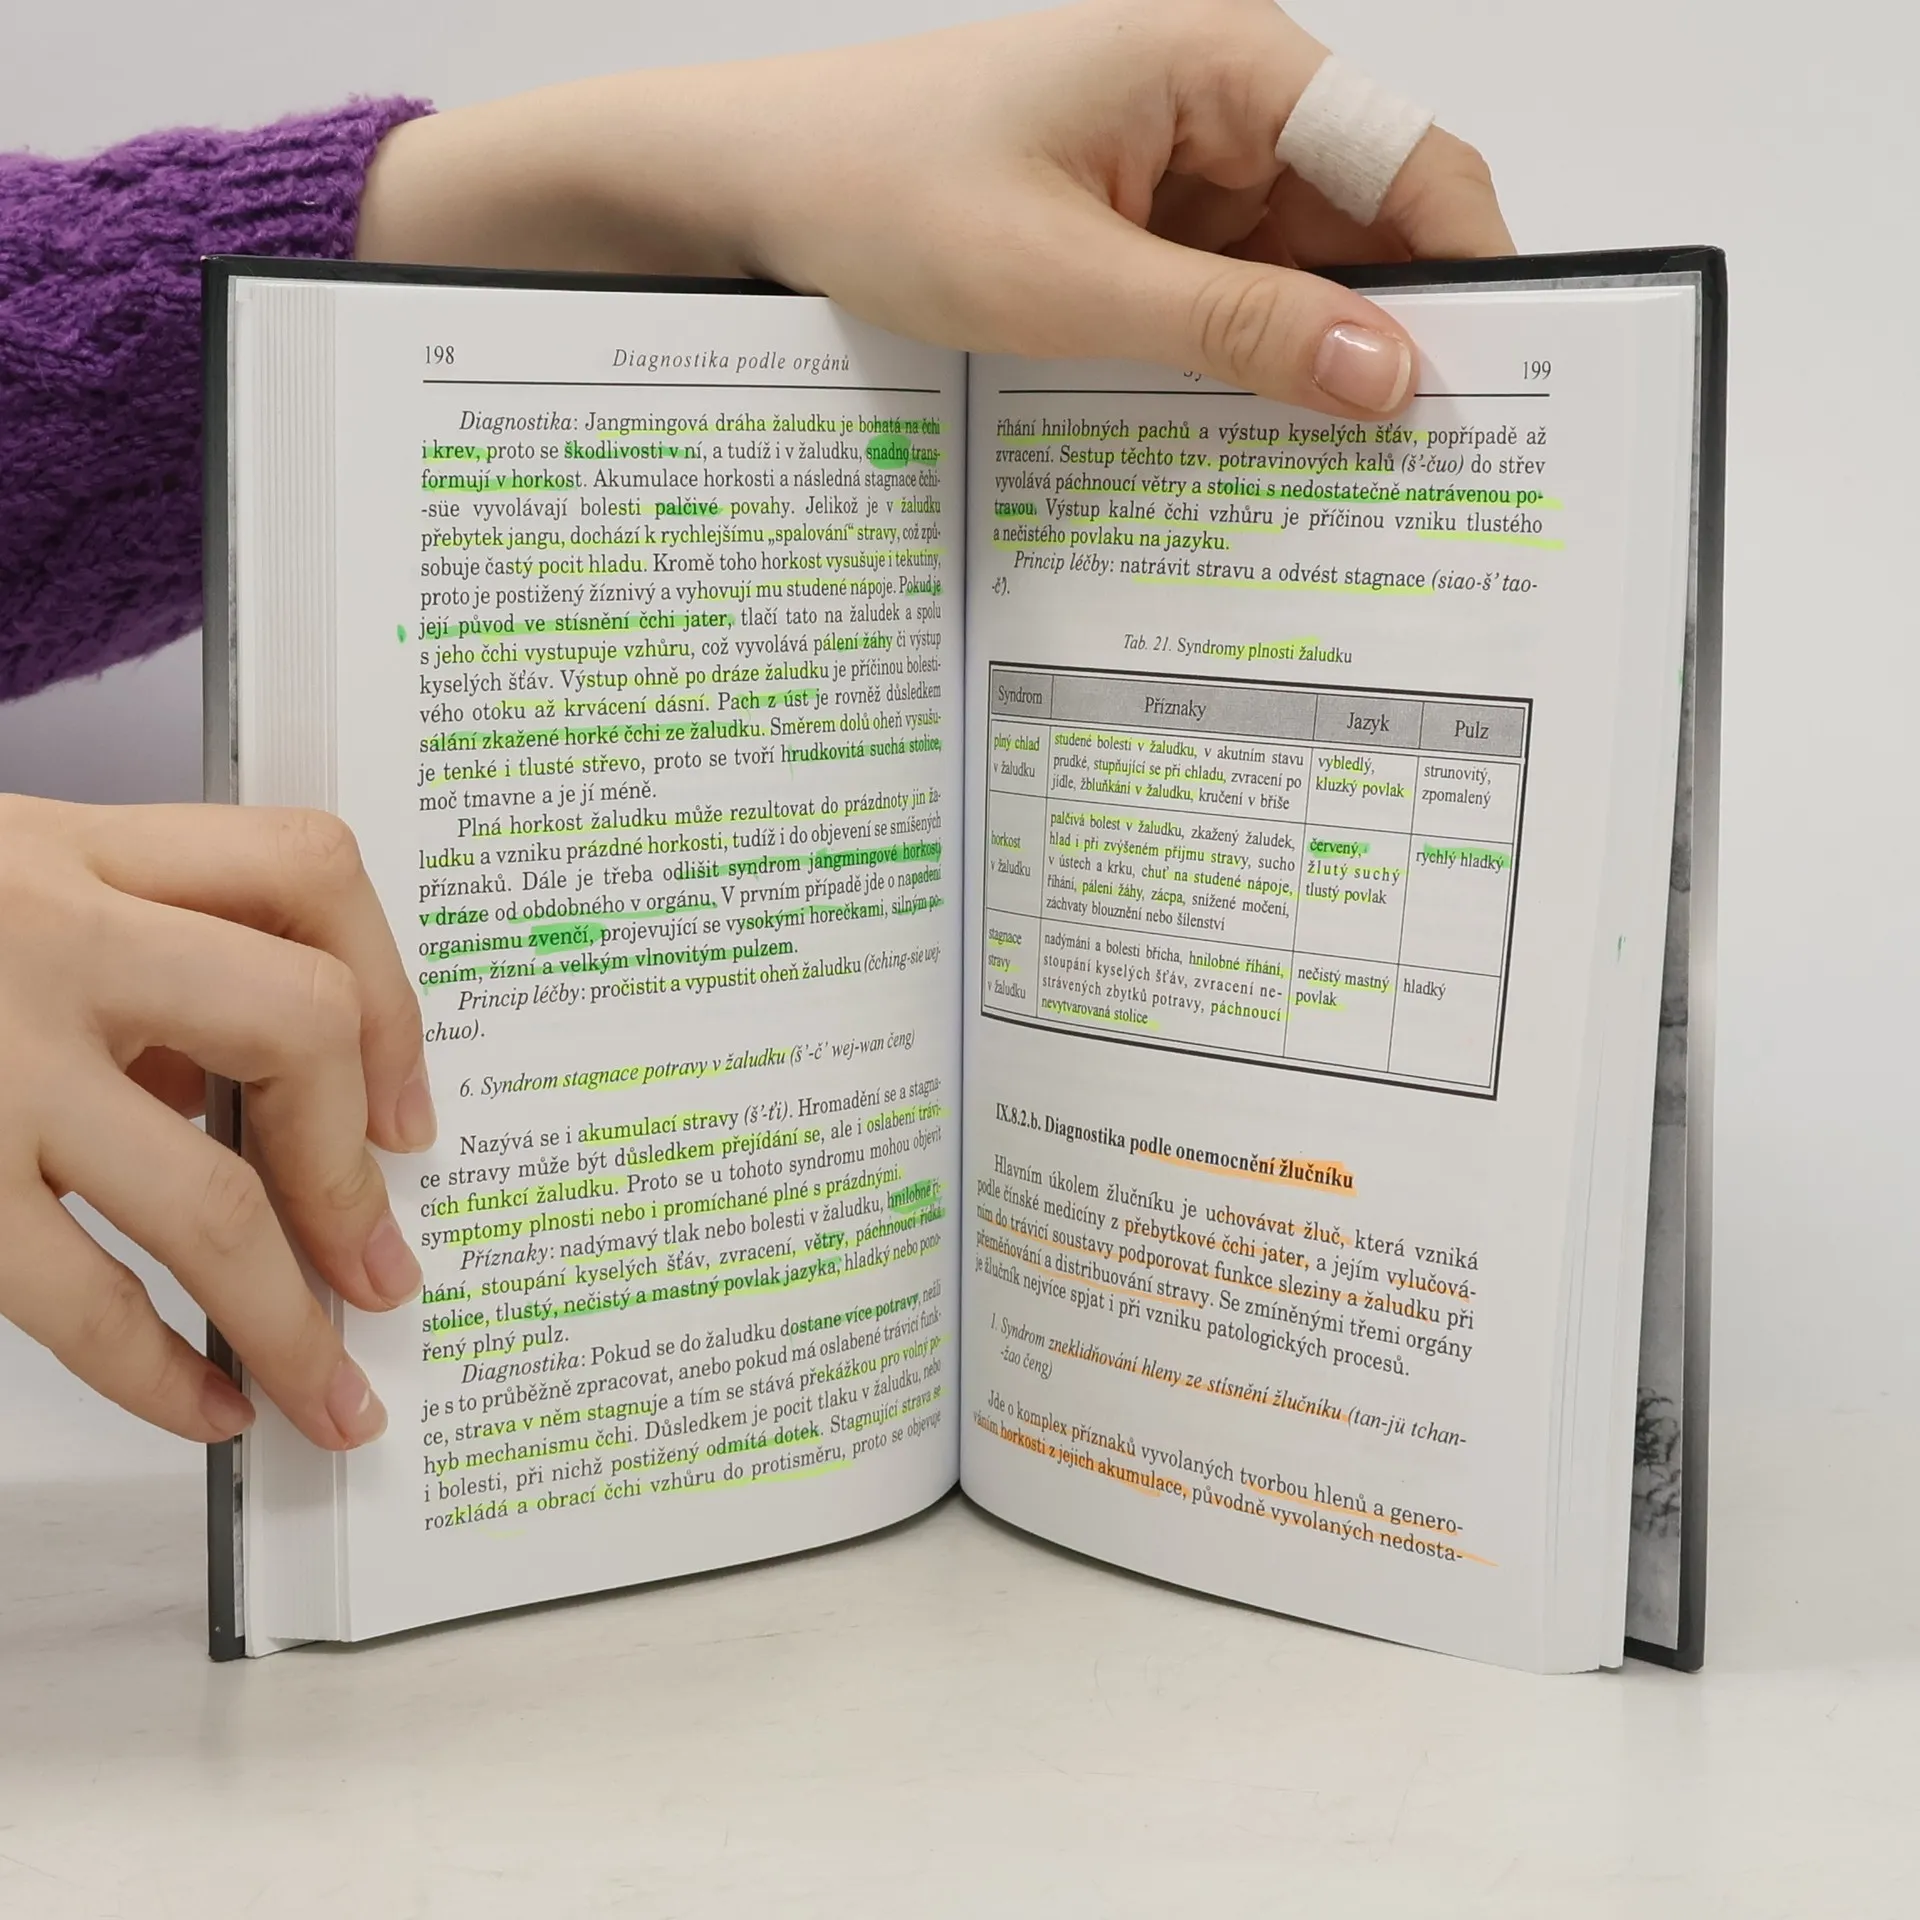 198
Diagnostika podle orgánů
Diagnostika: Jangmingová dráha žaludku je bohatá na čchi
i krev, proto se škodlivosti v ní, a tudíž i v žaludku, snadno trans-
formují v horkost. Akumulace horkosti a následná stagnace čchi-
-süe vyvolávají bolesti palčivé povahy. Jelikož je v žaludku
přebytek jangu, dochází k rychlejšímu „spalování“ stravy, což způ-
sobuje častý pocit hladu. Kromě toho horkost vysušuje i tekutiny,
proto je postižený žíznivý a vyhovují mu studené nápoje. Pokud je
její původ ve stísnění čchi jater, tlačí tato na žaludek a spolu
s jeho čchi vystupuje vzhůru, což vyvolává pálení žáhy či výstup
kyselých šťáv. Výstup ohně po dráze žaludku je příčinou bolesti-
vého otoku až krvácení dásní. Pach z úst je rovněž důsledkem
sálání zkažené horké čchi ze žaludku. Směrem dolů oheň vysušu-
je tenké i tlusté střevo, proto se tvoří hrudkovitá suchá stolice,
moč tmavne a je jí méně.
Plná horkost žaludku může rezultovat do prázdnoty jin ža-
ludku a vzniku prázdné horkosti, tudíž i do objevení se smíšených
příznaků. Dále je třeba odlišit syndrom jangmingové horkosti
v dráze od obdobného v orgánu. V prvním případě jde o napadení
organismu zvenčí, projevující se vysokými horečkami, silným po-
cením, žízní a velkým vlnovitým pulzem.
Princip léčby: pročistit a vypustit oheň žaludku (čching-sie wej-
chuo).
6. Syndrom stagnace potravy v žaludku (š’-č’ wej-wan čeng)
Nazývá se i akumulací stravy (š’-ťi). Hromadění se a stagna-
ce stravy může být důsledkem přejídání se, ale i oslabení tráví-
cích funkcí žaludku. Proto se u tohoto syndromu mohou objevit
symptomy plnosti nebo i promíchané plné s prázdnými.
Příznaky: nadýmavý tlak nebo bolesti v žaludku, hnilobné ří-
hání, stoupání kyselých šťáv, zvracení, větry, páchnoucí řídká
stolice, tlustý, nečistý a mastný povlak jazyka, hladký nebo pono-
řený plný pulz.
Diagnostika: Pokud se do žaludku dostane více potravy, nežli
je s to průběžně zpracovat, anebo pokud má oslabené trávicí funk-
ce, strava v něm stagnuje a tím se stává překážkou pro volný po-
hyb mechanismu čchi. Důsledkem je pocit tlaku v žaludku, nebo
i bolesti, při nichž postižený odmítá dotek. Stagnující strava se
rozkládá a obrací čchi vzhůru do protisměru, proto se objevuje
199
říhání hnilobných pachů a výstup kyselých šťáv, popřípadě až
zvracení. Sestup těchto tzv. potravinových kalů (š’-čuo) do střev
vyvolává páchnoucí větry a stolici s nedostatečně natrávenou po-
travou. Výstup kalné čchi vzhůru je příčinou vzniku tlustého
a nečistého povlaku na jazyku.
Princip léčby: natrávit stravu a odvést stagnace (siao-š’ tao-
-č’).
Tab. 21. Syndromy plnosti žaludku
Syndrom Příznaky Jazyk Pulz
plný chlad
v žaludku
studené bolesti v žaludku, v akutním stavu
prudké, stupňující se při chladu, zvracení po
jídle, žbluňkání v žaludku, kručení v břiše
vybledlý,
kluzký povlak
strunovitý,
zpomalený
horkost
v žaludku
palčivá bolest v žaludku, zkažený žaludek,
hlad i při zvýšeném přijmu stravy, sucho
v ústech a krku, chuť na studené nápoje,
říhání, pálení žáhy, zácpa, snížené močení,
záchvaty blouznění nebo šílenství
červený,
žlutý suchý
tlustý povlak
rychlý hladký
stagnace
stravy
v žaludku
nadýmání a bolesti břicha, hnilobné říhání,
stoupání kyselých šťáv, zvracení ne-
strávených zbytků potravy, páchnoucí
nevytvarovaná stolice
nečistý mastný
povlak
hladký
IX.8.2.b. Diagnostika podle onemocnění žlučníku
Hlavním úkolem žlučníku je uchovávat žluč, která vzniká
podle čínské medicíny z přebytkové čchi jater, a jejím vylučová-
ním do trávicí soustavy podporovat funkce sleziny a žaludku při
přeměňování a distribuování stravy. Se zmíněnými třemi orgány
je žlučník nejvíce spjat i při vzniku patologických procesů.
1. Syndrom zneklidňování hleny ze stísnění žlučníku (tan-jü tchan-
-žao čeng)
Jde o komplex příznaků vyvolaných tvorbou hlenů a genero-
váním horkosti z jejich akumulace, původně vyvolaných nedosta-